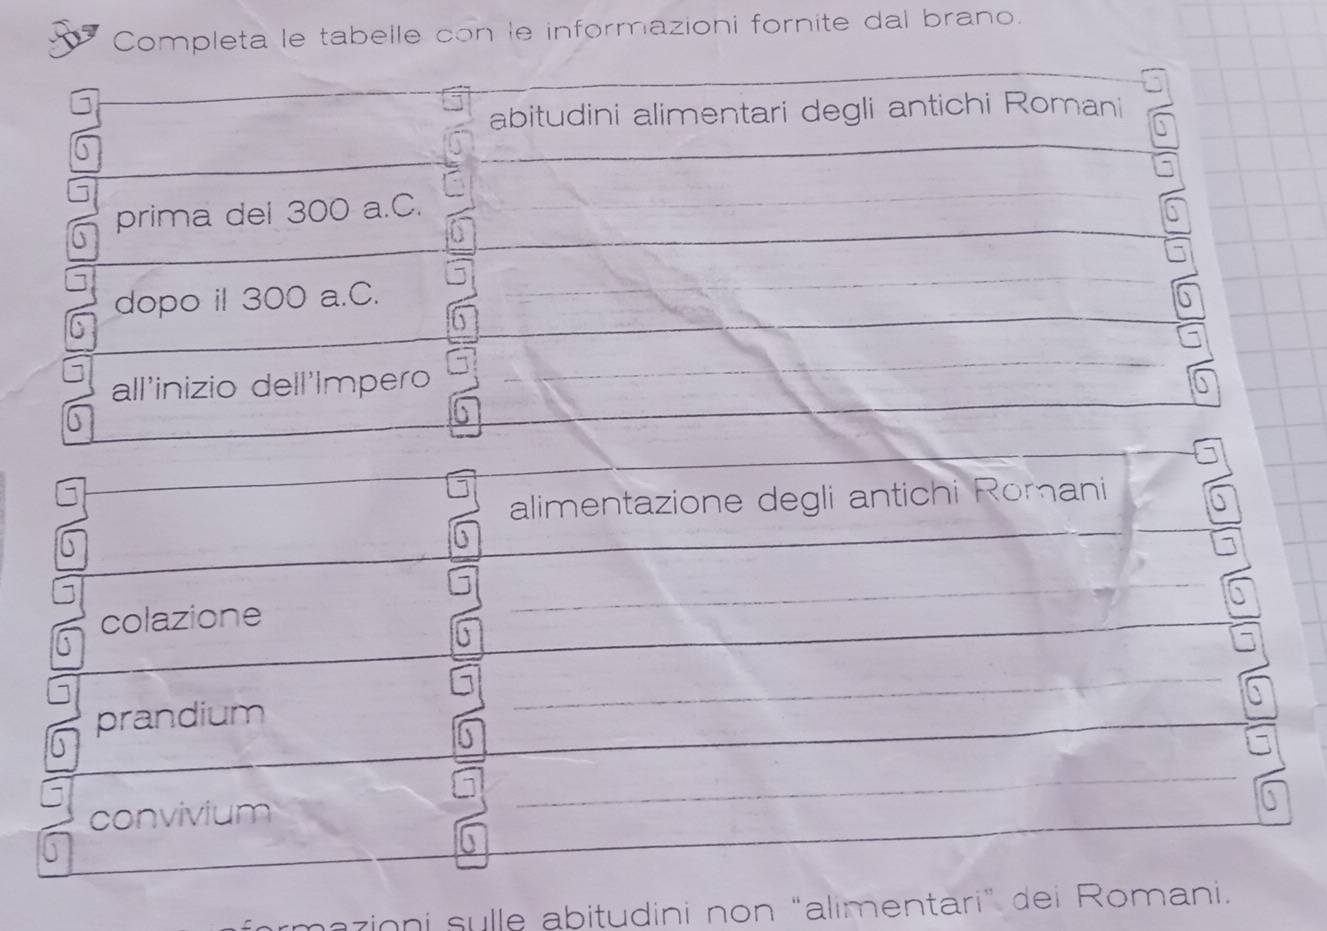 Completa le tabelle con le informazioni fornite dal brano.
abitudini alimentari degli antichi Romani
prima del 300 a.C.
dopo il 300 a.C.
all'inizio dell'Impero
alimentazione degli antichi Romani
colazione
prandium
convivium
sulle abitudini non "alimentari" dei Romani.